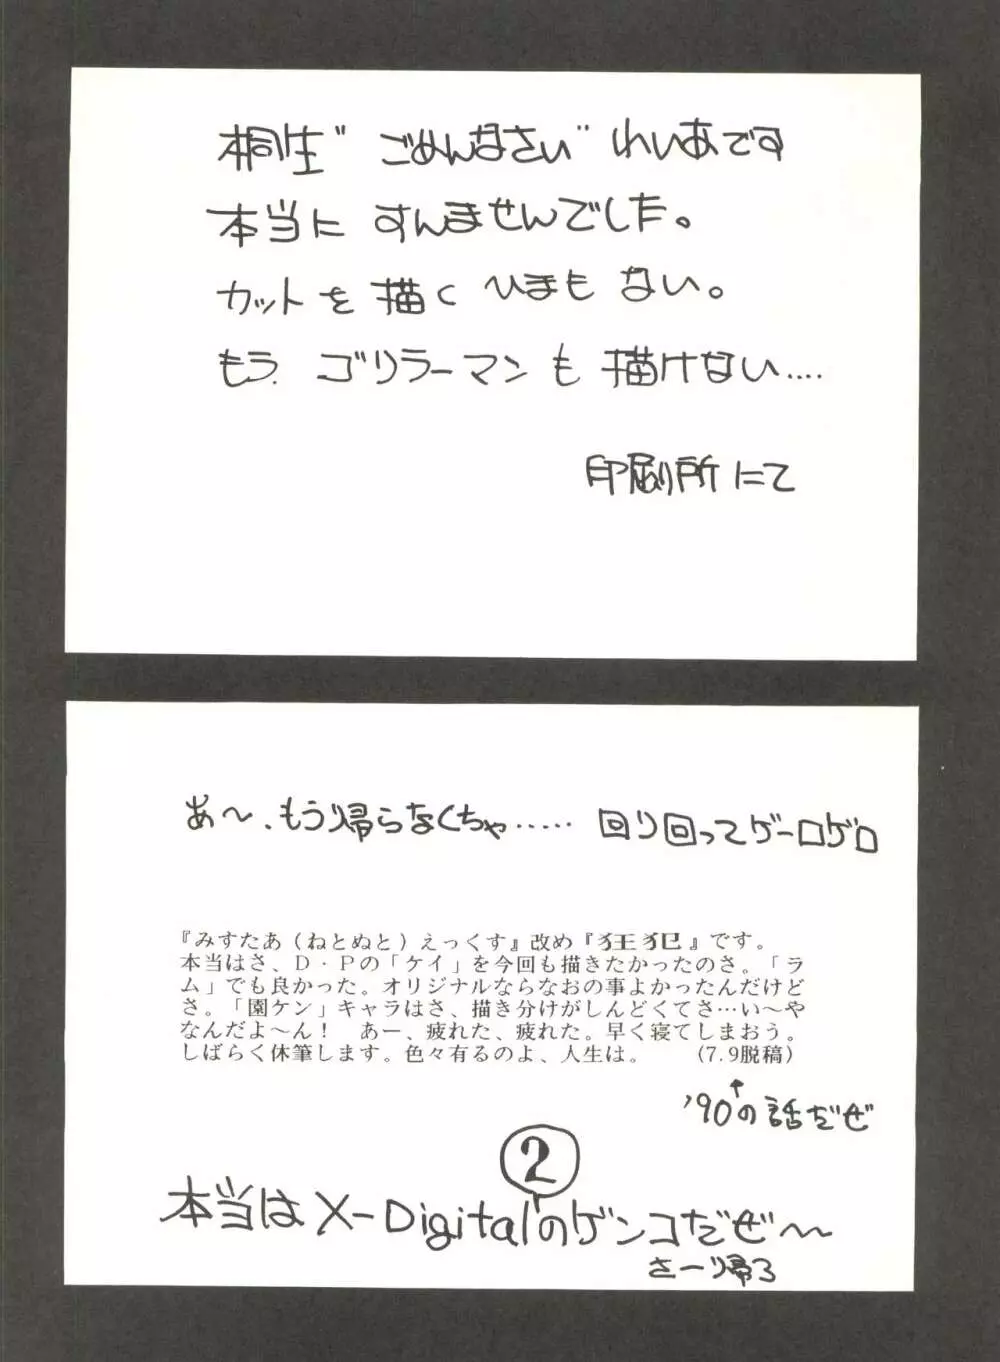 桐生"ごめんなさい"れいあです
本当に すんませんでした。
カットを描く ひまも ない。
もう. ゴリラーマン も 描けない....
印刷所 にて
あ〜、もう帰らなくちゃ..... 回り回ってゲーロゲロ
『みすたあ（ねとぬと）えっくす』改め『狂犯』です。
本当はさ、Ｄ・Ｐの「ケイ」を今回も描きたかったのさ。「ラ
ム」でも良かった。オリジナルならなおの事よかったんだけど
さ。「園ケン」キャラはさ、描き分けがしんどくてさ…い〜や
なんだよ〜ん！　あー、疲れた、疲れた。早く寝てしまおう。
しばらく休筆します。色々有るのよ、人生は。　（7.9脱稿）
'90の話だぜ
2
本当はX-Digitalのゲンコだぜ〜
さーり帰ろ